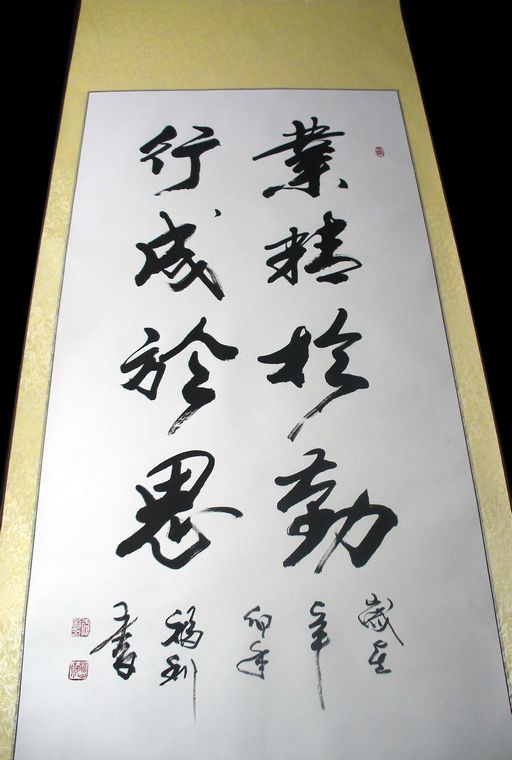 業精於勤
行成於思
歲
辛
卯年
福利
書